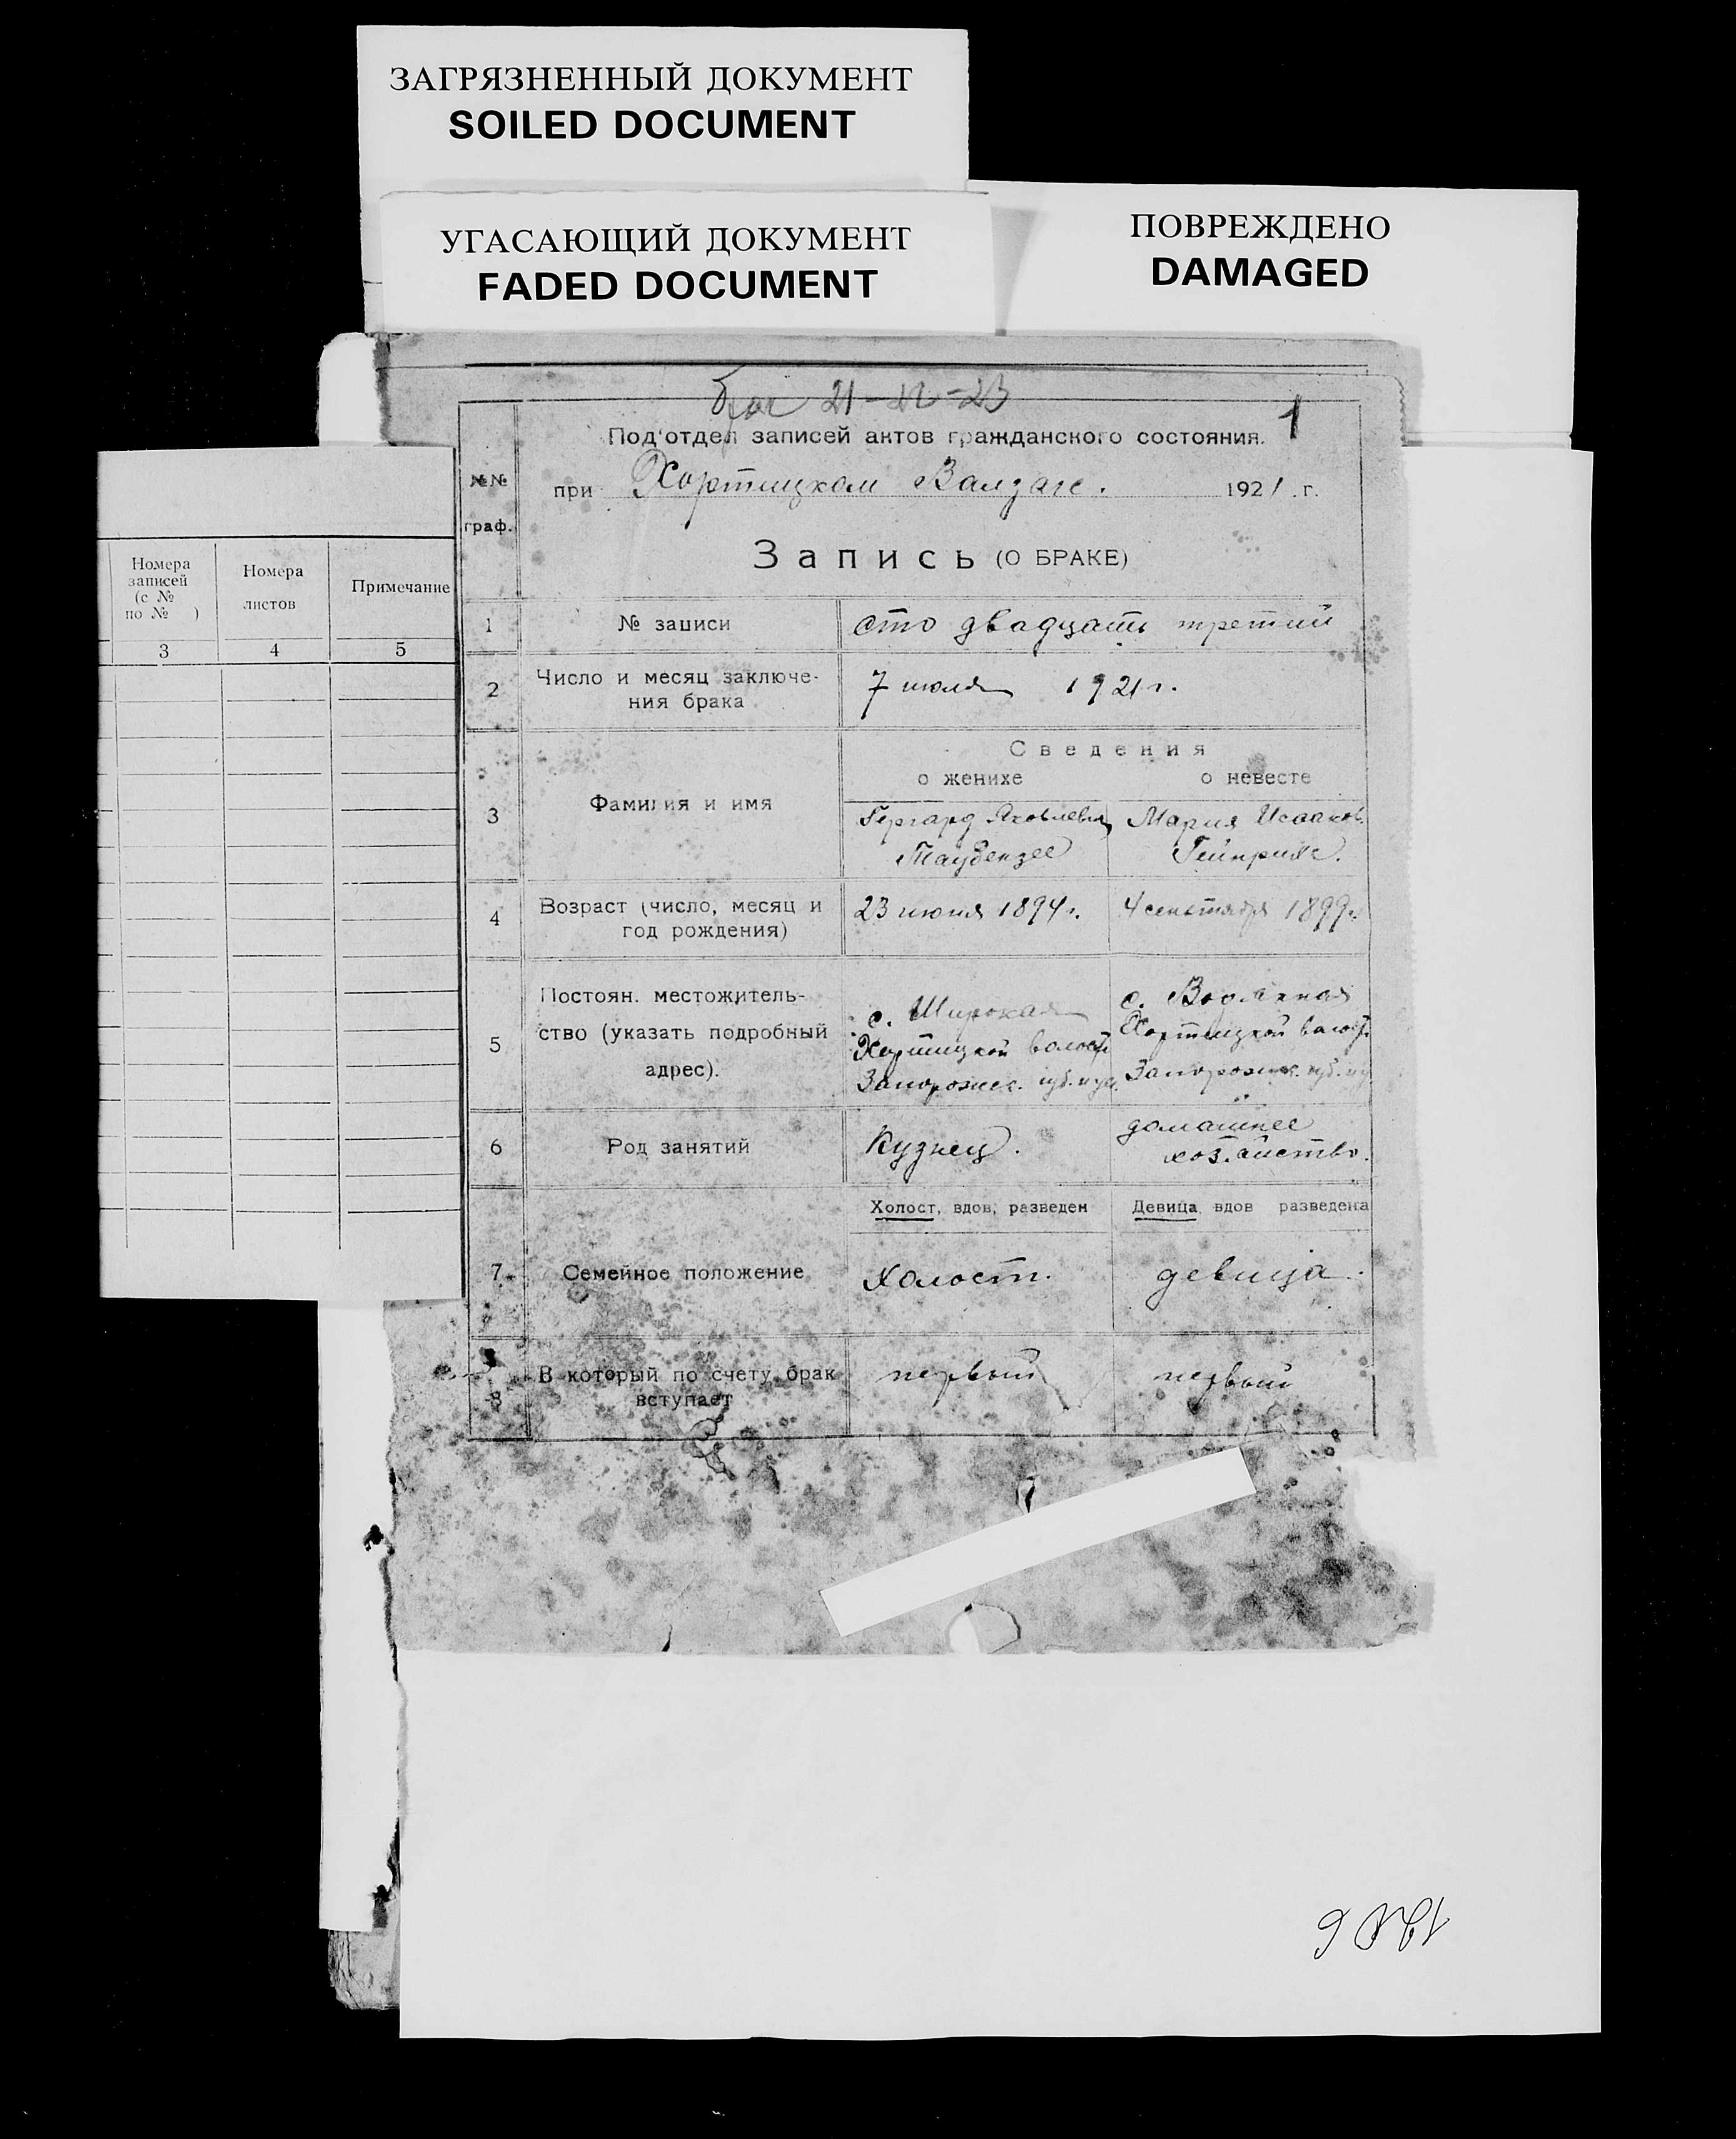 ЗАГРЯЗНЕННЫЙ ДОКУМЕНТ
SOILED DOCUMENT
УГАСАЮЩИЙ ДОКУМЕНТ
FADED DOCUMENT
ПОВРЕЖДЕНО
DAMAGED
Номера записей (с № по № )
Номера листов
Примечание
3 4 5
21-22-23
1
Под'отдел записей актов гражданского состояния.
№№ граф.
при Хортицком Валзаге. 1921 г.
Запись (О БРАКЕ)
1 № записи сто двадцать третий
2 Число и месяц заключе-
ния брака 7 июля 1921 г.
Сведения
о женихе о невесте
3 Фамилия и имя Гергард Яковлевич Мария Исааков.
Таубензее Гейнрикс.
4 Возраст (число, месяц и 23 июня 1894 г. 4 сентября 1899 г.
год рождения)
5 Постоян. местожитель- с. Широкая с. Водяная
ство (указать подробный Хортицкой волости Хортицкой волост.
адрес). Запорожск. губ. и уез. Запорожск. губ. и у
6 Род занятий Кузнец. домашнее
хозяйство.
Холост, вдов, разведен Девица вдов разведена
7 Семейное положение холост. девица.
8 В который по счету брак первый первый
вступает